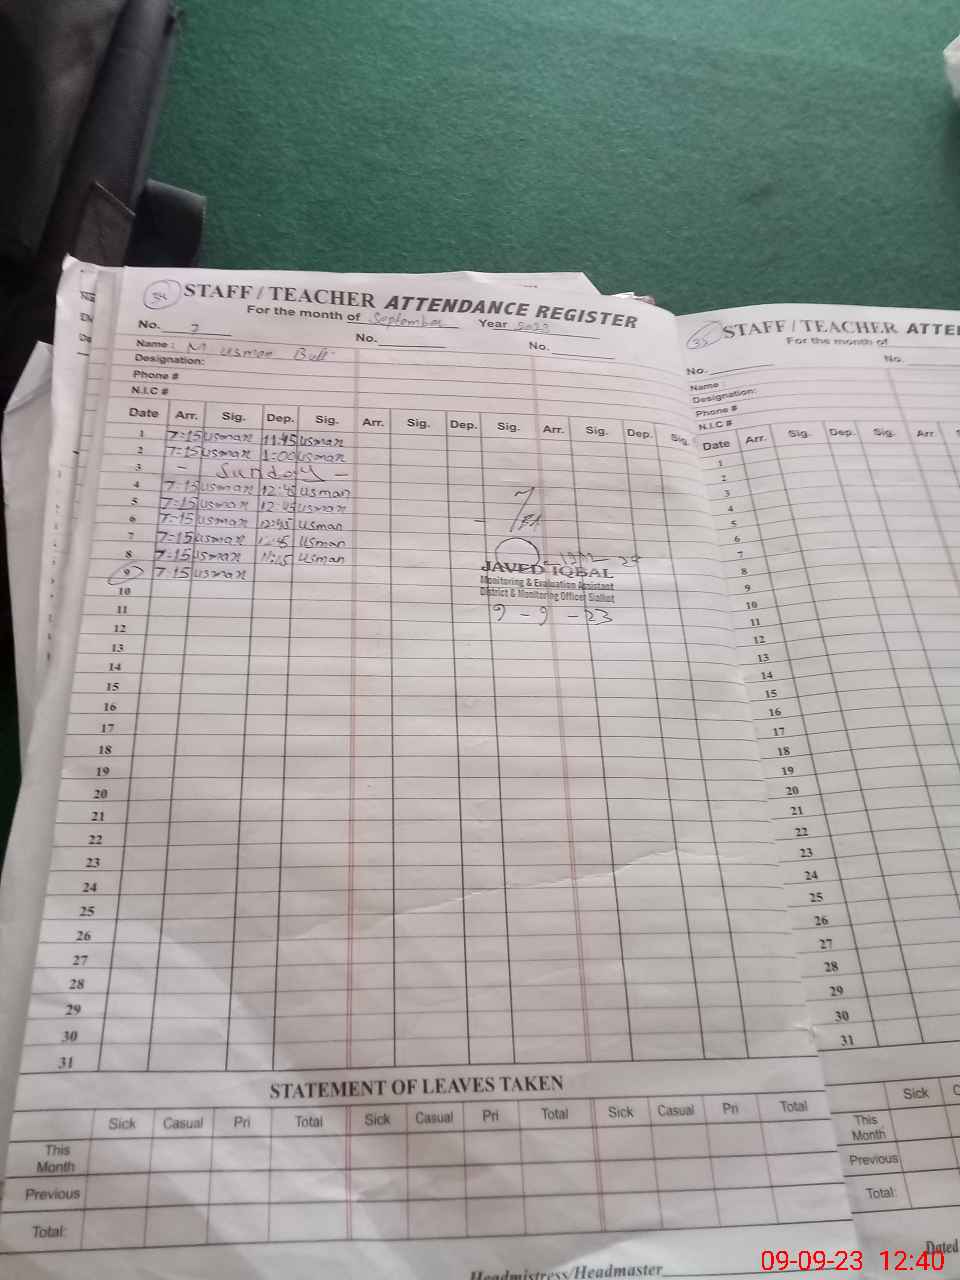 34 STAFF / TEACHER ATTENDANCE REGISTER
For the month of September Year 2023
No. 7 No. No.
Name : M usman Butt
Designation:
Phone #
N.I.C #
Date Arr. Sig. Dep. Sig. Arr. Sig. Dep. Sig. Arr. Sig. Dep. Sig.
1 7:15 usman 11:45 usman
2 7:15 usman 1:00 usman
3 - Sunday -
4 7:15 usman 12:45 usman
5 7:15 usman 12:45 usman
6 7:15 usman 12:45 usman
7 7:15 usman 12:45 usman
8 7:15 usman 11:15 usman
9 7:15 usman
JAVED IQBAL
Monitoring & Evaluation Assistant
District & Monitoring Officer Sialkot
9 - 9 - 23
10
11
12
13
14
15
16
17
18
19
20
21
22
23
24
25
26
27
28
29
30
31
STATEMENT OF LEAVES TAKEN
Sick Casual Pri Total Sick Casual Pri Total Sick Casual Pri Total
This
Month
Previous
Total:
Headmistress/Headmaster
35 STAFF / TEACHER ATTE
For the month of
No. No.
Name :
Designation:
Phone #
N.I.C #
Date Arr. Sig. Dep. Sig. Arr.
1
2
3
4
5
6
7
8
9
10
11
12
13
14
15
16
17
18
19
20
21
22
23
24
25
26
27
28
29
30
31
Sick
This
Month
Previous
Total:
Dated
09-09-23 12:40